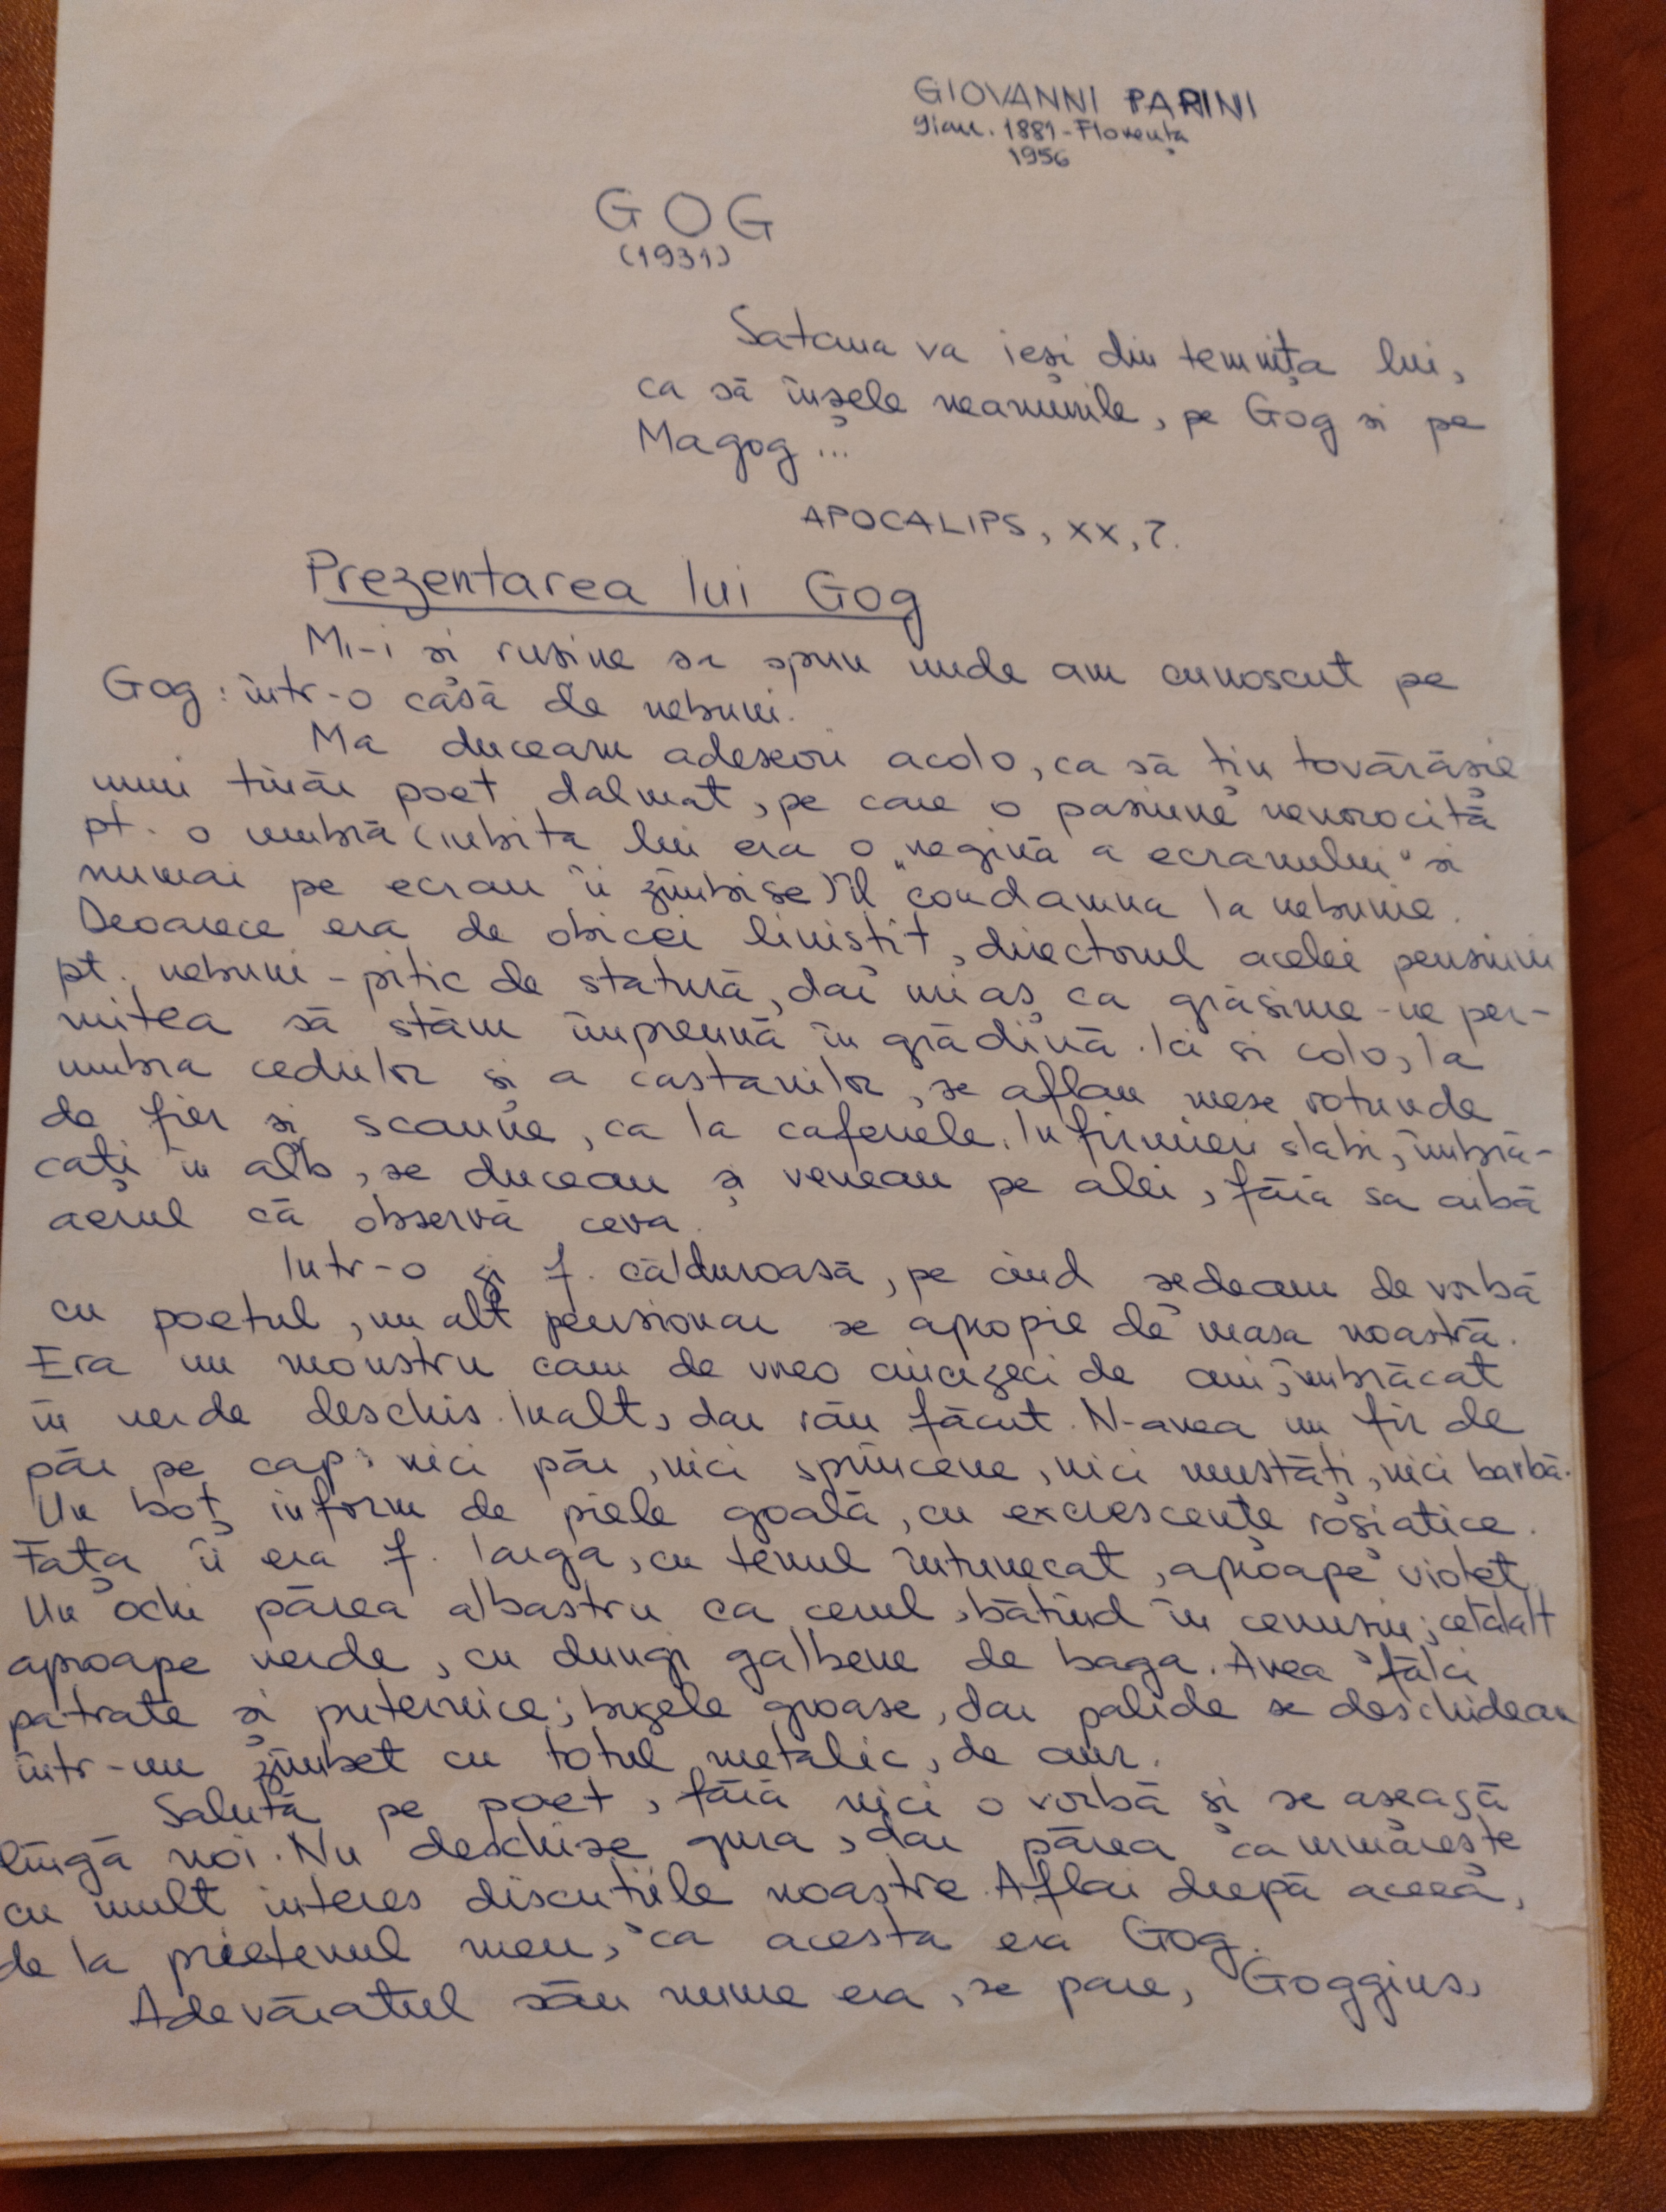 GIOVANNI PAPINI
9ian. 1881 - Florența
1956
GOG
(1931)
Satana va ieși din temnița lui,
ca să înșele neamurile, pe Gog si pe
Magog ...
APOCALIPS, XX, 7.
Prezentarea lui Gog
Mi-i și rusine sa spun unde am cunoscut pe
Gog: într-o casă de nebuni.
Ma duceam adeseori acolo, ca să țin tovărăsie
unui tînăr poet dalmat, pe care o pasiune nenorocită
pt. o umbră (iubita lui era o „regină a ecranului" si
numai pe ecran îi zîmbise) îl condamna la nebunie.
Deoarece era de obicei linistit, directorul acelei pensiuni
pt. nebuni - pitic de statură, dar urias ca grăsime - ne per-
mitea să stăm împreună în grădină. Ici si colo, la
umbra cedrilor și a castanilor, se aflau mese rotunde
de fier si scaune, ca la cafenele. Infirmieri slabi, îmbră-
cați în alb, se duceau și veneau pe alei, fără sa aibă
aerul că observă ceva.
Intr-o zi f. călduroasă, pe cînd sedeam de vorbă
cu poetul, un alt pensionar se apropie de masa noastră.
Era un monstru cam de vreo cincizeci de ani, îmbrăcat
în verde deschis. Inalt, dar rău făcut. N-avea un fir de
păr pe cap: nici păr, nici sprîncene, nici mustăți, nici barbă.
Un boț inform de piele goală, cu excrescențe roșiatice.
Fața îi era f. larga, cu tenul întunecat, aproape violet.
Un ochi părea albastru ca cerul, bătînd în cenusiu; celălalt
aproape verde, cu dungi galbene de baga. Avea fălci
patrate si puternice; buzele groase, dar palide se deschideau
într-un zîmbet cu totul metalic, de aur.
Salută pe poet, fără nici o vorbă si se asează
lîngă noi. Nu deschise gura, dar părea ca urmărește
cu mult interes discutiile noastre. Aflai după aceea,
de la prietenul meu, ca acesta era Gog.
Adevăratul său nume era, se pare, Goggins,